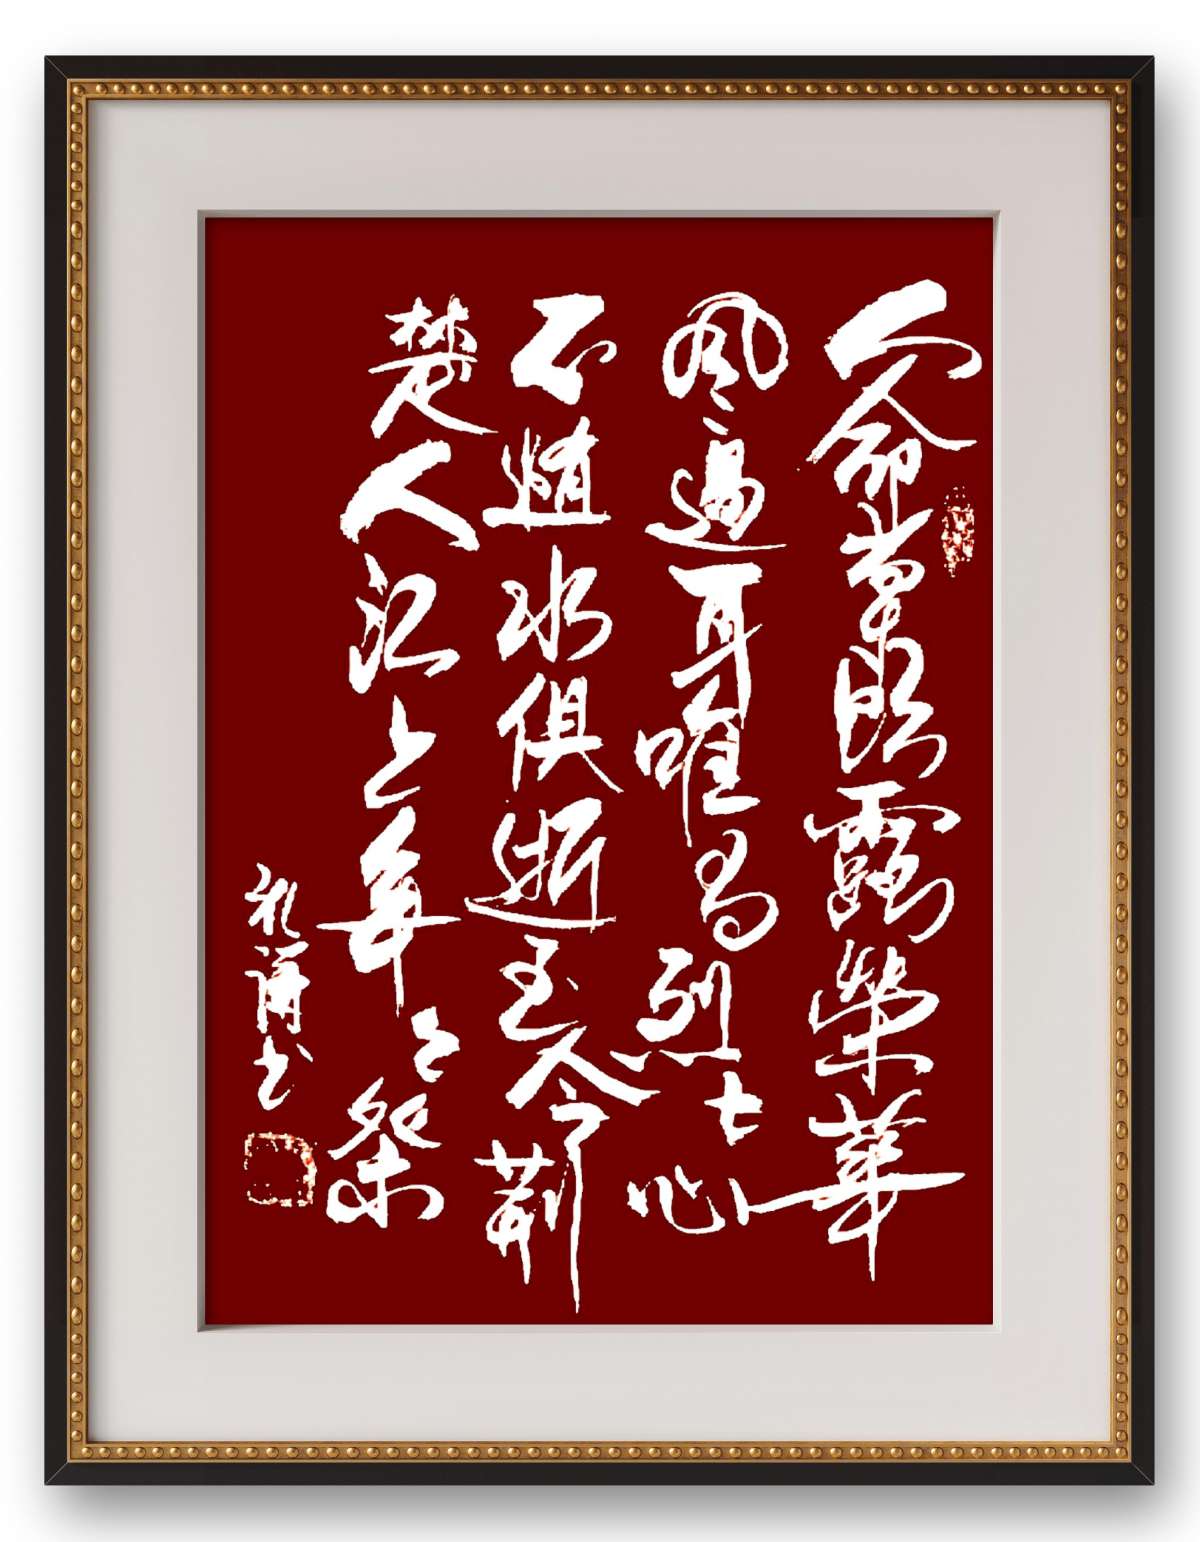 人命草頭露榮華
風過耳唯留烈士心
不隨水俱逝至今荊
楚人江上年々祭
礼浦书